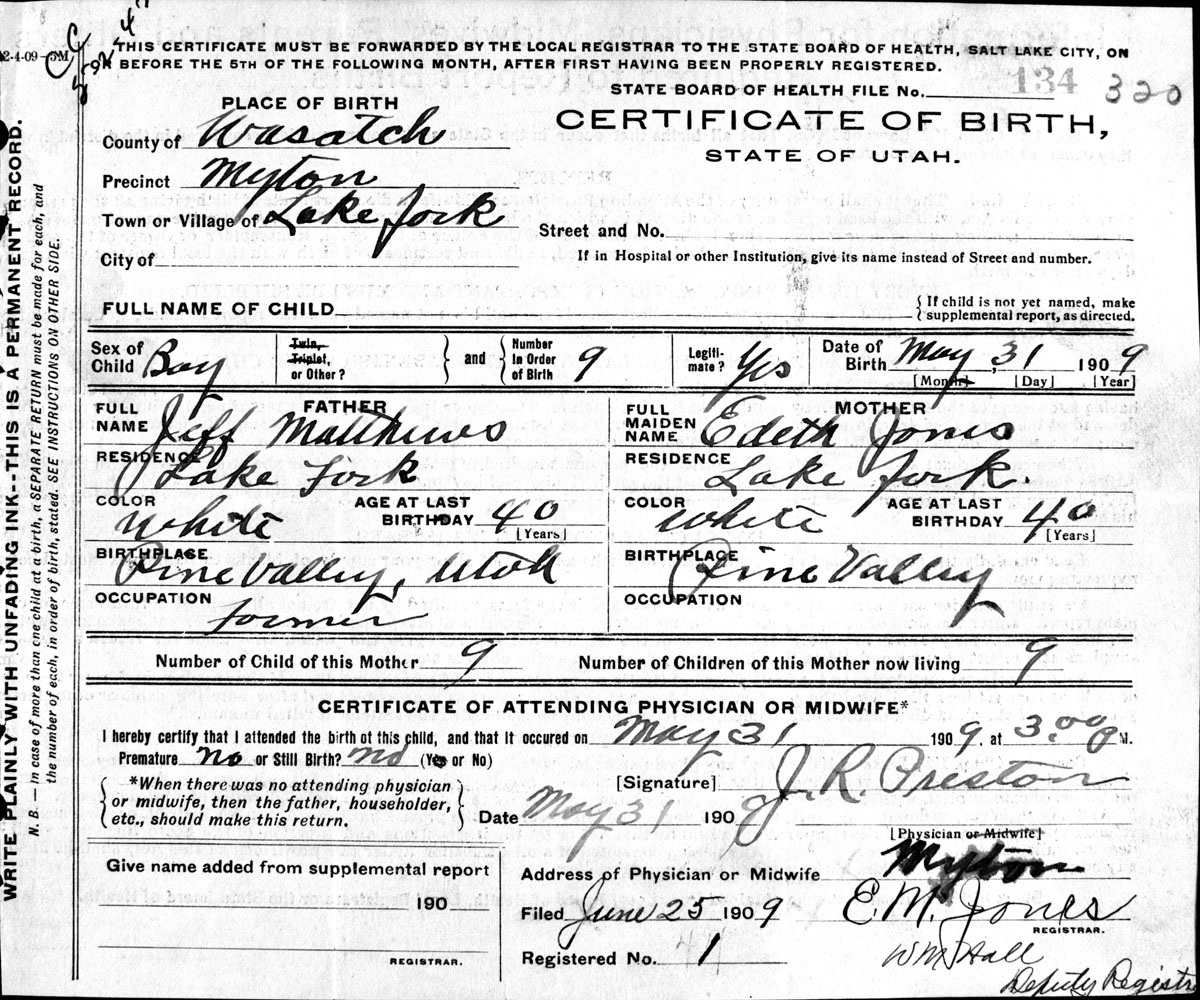 2-4-09-5M
THIS CERTIFICATE MUST BE FORWARDED BY THE LOCAL REGISTRAR TO THE STATE BOARD OF HEALTH, SALT LAKE CITY, ON
BEFORE THE 5TH OF THE FOLLOWING MONTH, AFTER FIRST HAVING BEEN PROPERLY REGISTERED.
STATE BOARD OF HEALTH FILE No. 134 320
PLACE OF BIRTH
CERTIFICATE OF BIRTH,
STATE OF UTAH.
County of Wasatch
Precinct Myton
Town or Village of Lake Fork
Street and No.
City of
If in Hospital or other Institution, give its name instead of Street and number.
FULL NAME OF CHILD
{ If child is not yet named, make
supplemental report, as directed.
Sex of Child Boy
Twin, Triplet, or Other?
and
Number In Order of Birth 9
Legiti-mate? Yes
Date of Birth May 31 1909
[Month] [Day] [Year]
FATHER
FULL NAME Jeff Matthews
RESIDENCE Lake Fork
COLOR White AGE AT LAST BIRTHDAY 40
[Years]
BIRTHPLACE Pine Valley, Utah
OCCUPATION Farmer
MOTHER
FULL MAIDEN NAME Edeth Jones
RESIDENCE Lake Fork.
COLOR White AGE AT LAST BIRTHDAY 40
[Years]
BIRTHPLACE Pine Valley
OCCUPATION
Number of Child of this Mother 9 Number of Children of this Mother now living 9
CERTIFICATE OF ATTENDING PHYSICIAN OR MIDWIFE*
I hereby certify that I attended the birth of this child, and that it occured on May 31 1909. at 3.00 P M.
Premature no or Still Birth? no (Yes or No)
[Signature] J. R. Preston
{ *When there was no attending physician
or midwife, then the father, householder,
etc., should make this return. }
Date May 31 1909
[Physician or Midwife]
Give name added from supplemental report
190
REGISTRAR.
Address of Physician or Midwife Myton
Filed June 25 1909 E. M. Jones
REGISTRAR.
Registered No. 1
Wm Hall
Deputy Registr
WRITE PLAINLY WITH UNFADING INK--THIS IS A PERMANENT RECORD.
N. B. — In case of more than one child at a birth, a SEPARATE RETURN must be made for each, and
the number of each, in order of birth, stated. SEE INSTRUCTIONS ON OTHER SIDE.